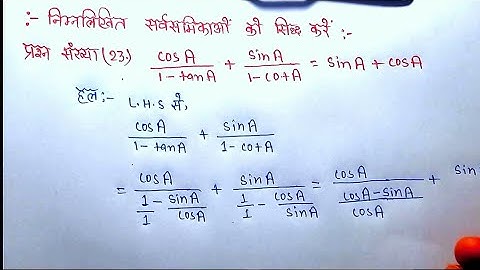 :- निम्नलिखित सर्वसमिकाओं को सिद्ध करें :-
प्रश्न संख्या (23.) cosA/(1-tanA) + sinA/(1-cotA) = sinA + cosA
हल:- L.H.S से,
cosA/(1-tanA) + sinA/(1-cotA)
= cosA/(1/1 - sinA/cosA) + sinA/(1/1 - cosA/sinA) = cosA/((cosA-sinA)/cosA) +